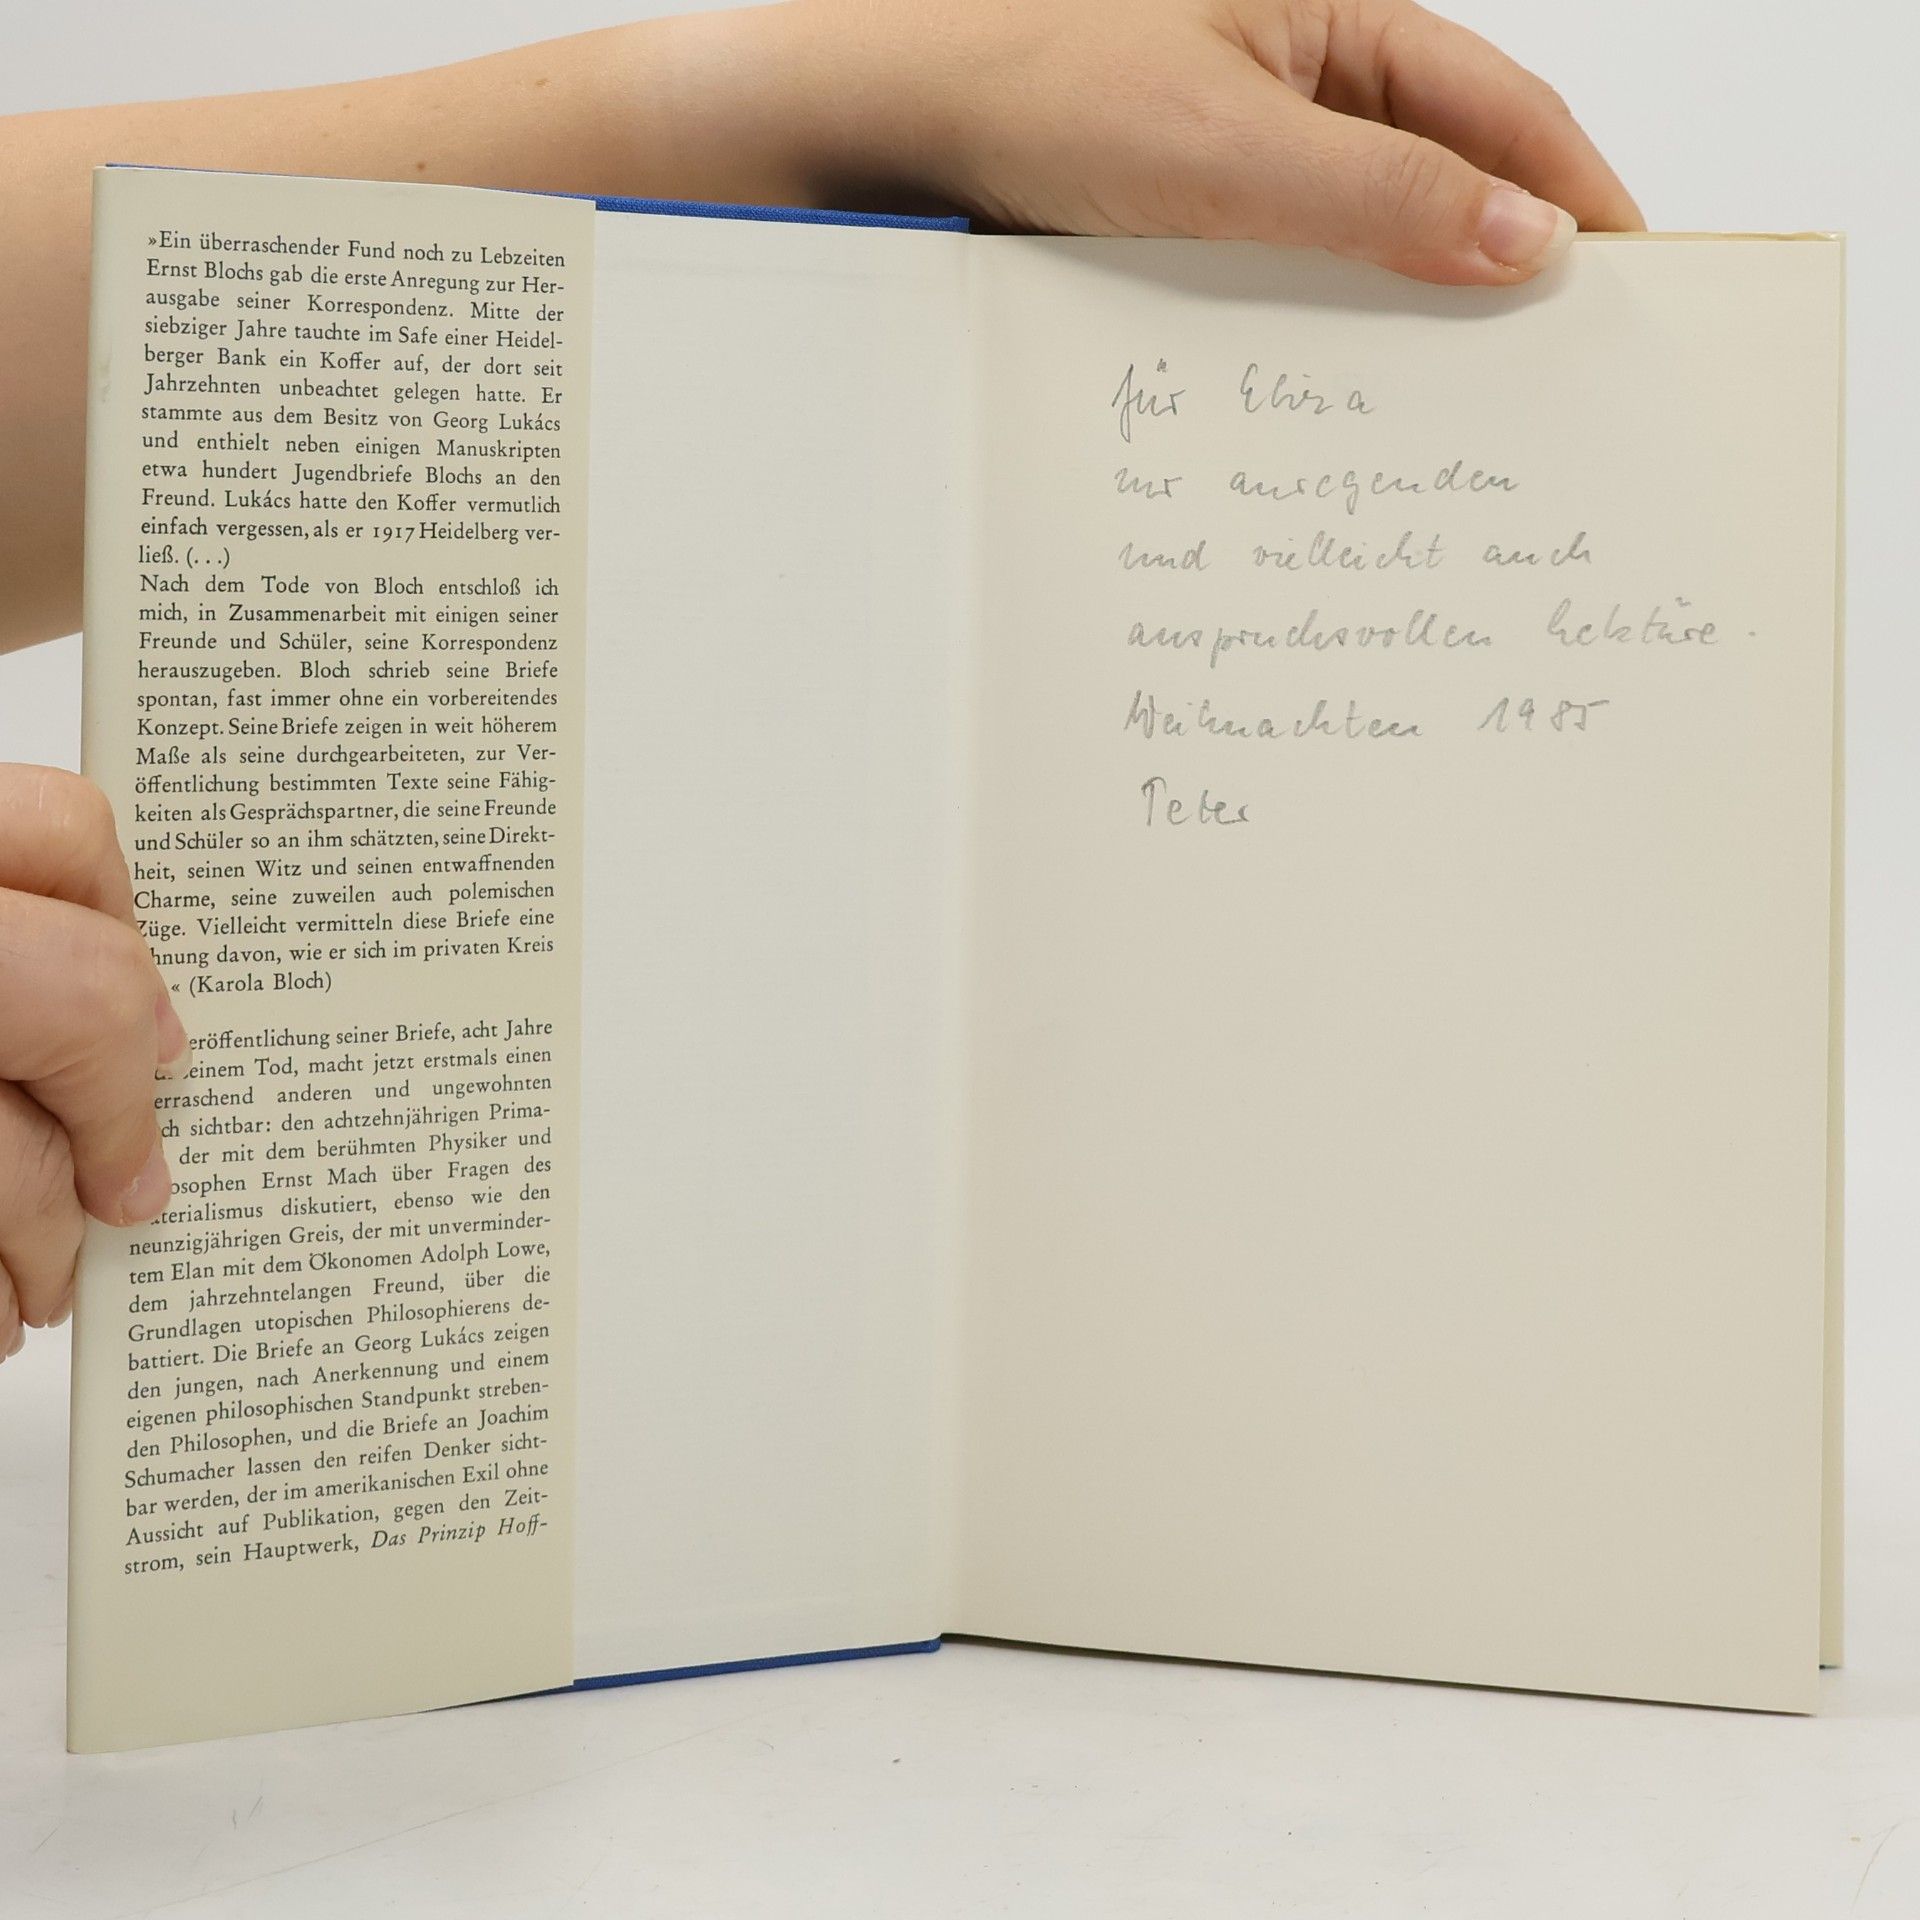 »Ein überraschender Fund noch zu Lebzeiten
Ernst Blochs gab die erste Anregung zur Her-
ausgabe seiner Korrespondenz. Mitte der
siebziger Jahre tauchte im Safe einer Heidel-
berger Bank ein Koffer auf, der dort seit
Jahrzehnten unbeachtet gelegen hatte. Er
stammte aus dem Besitz von Georg Lukács
und enthielt neben einigen Manuskripten
etwa hundert Jugendbriefe Blochs an den
Freund. Lukács hatte den Koffer vermutlich
einfach vergessen, als er 1917 Heidelberg ver-
ließ. (...)
Nach dem Tode von Bloch entschloß ich
mich, in Zusammenarbeit mit einigen seiner
Freunde und Schüler, seine Korrespondenz
herauszugeben. Bloch schrieb seine Briefe
spontan, fast immer ohne ein vorbereitendes
Konzept. Seine Briefe zeigen in weit höherem
Maße als seine durchgearbeiteten, zur Ver-
öffentlichung bestimmten Texte seine Fähig-
keiten als Gesprächspartner, die seine Freunde
und Schüler so an ihm schätzten, seine Direkt-
heit, seinen Witz und seinen entwaffnenden
Charme, seine zuweilen auch polemischen
Züge. Vielleicht vermitteln diese Briefe eine
hnung davon, wie er sich im privaten Kreis
« (Karola Bloch)
eröffentlichung seiner Briefe, acht Jahre
einem Tod, macht jetzt erstmals einen
erraschend anderen und ungewohnten
ch sichtbar: den achtzehnjährigen Prima-
der mit dem berühmten Physiker und
osophen Ernst Mach über Fragen des
terialismus diskutiert, ebenso wie den
neunzigjährigen Greis, der mit unverminder-
tem Elan mit dem Ökonomen Adolph Lowe,
dem jahrzehntelangen Freund, über die
Grundlagen utopischen Philosophierens de-
battiert. Die Briefe an Georg Lukács zeigen
den jungen, nach Anerkennung und einem
eigenen philosophischen Standpunkt streben-
den Philosophen, und die Briefe an Joachim
Schumacher lassen den reifen Denker sicht-
bar werden, der im amerikanischen Exil ohne
Aussicht auf Publikation, gegen den Zeit-
strom, sein Hauptwerk, Das Prinzip Hoff-
für
anregenden
und vielleicht auch
anspruchsvollen Lektüre.
Weihnachten 1985
Peter